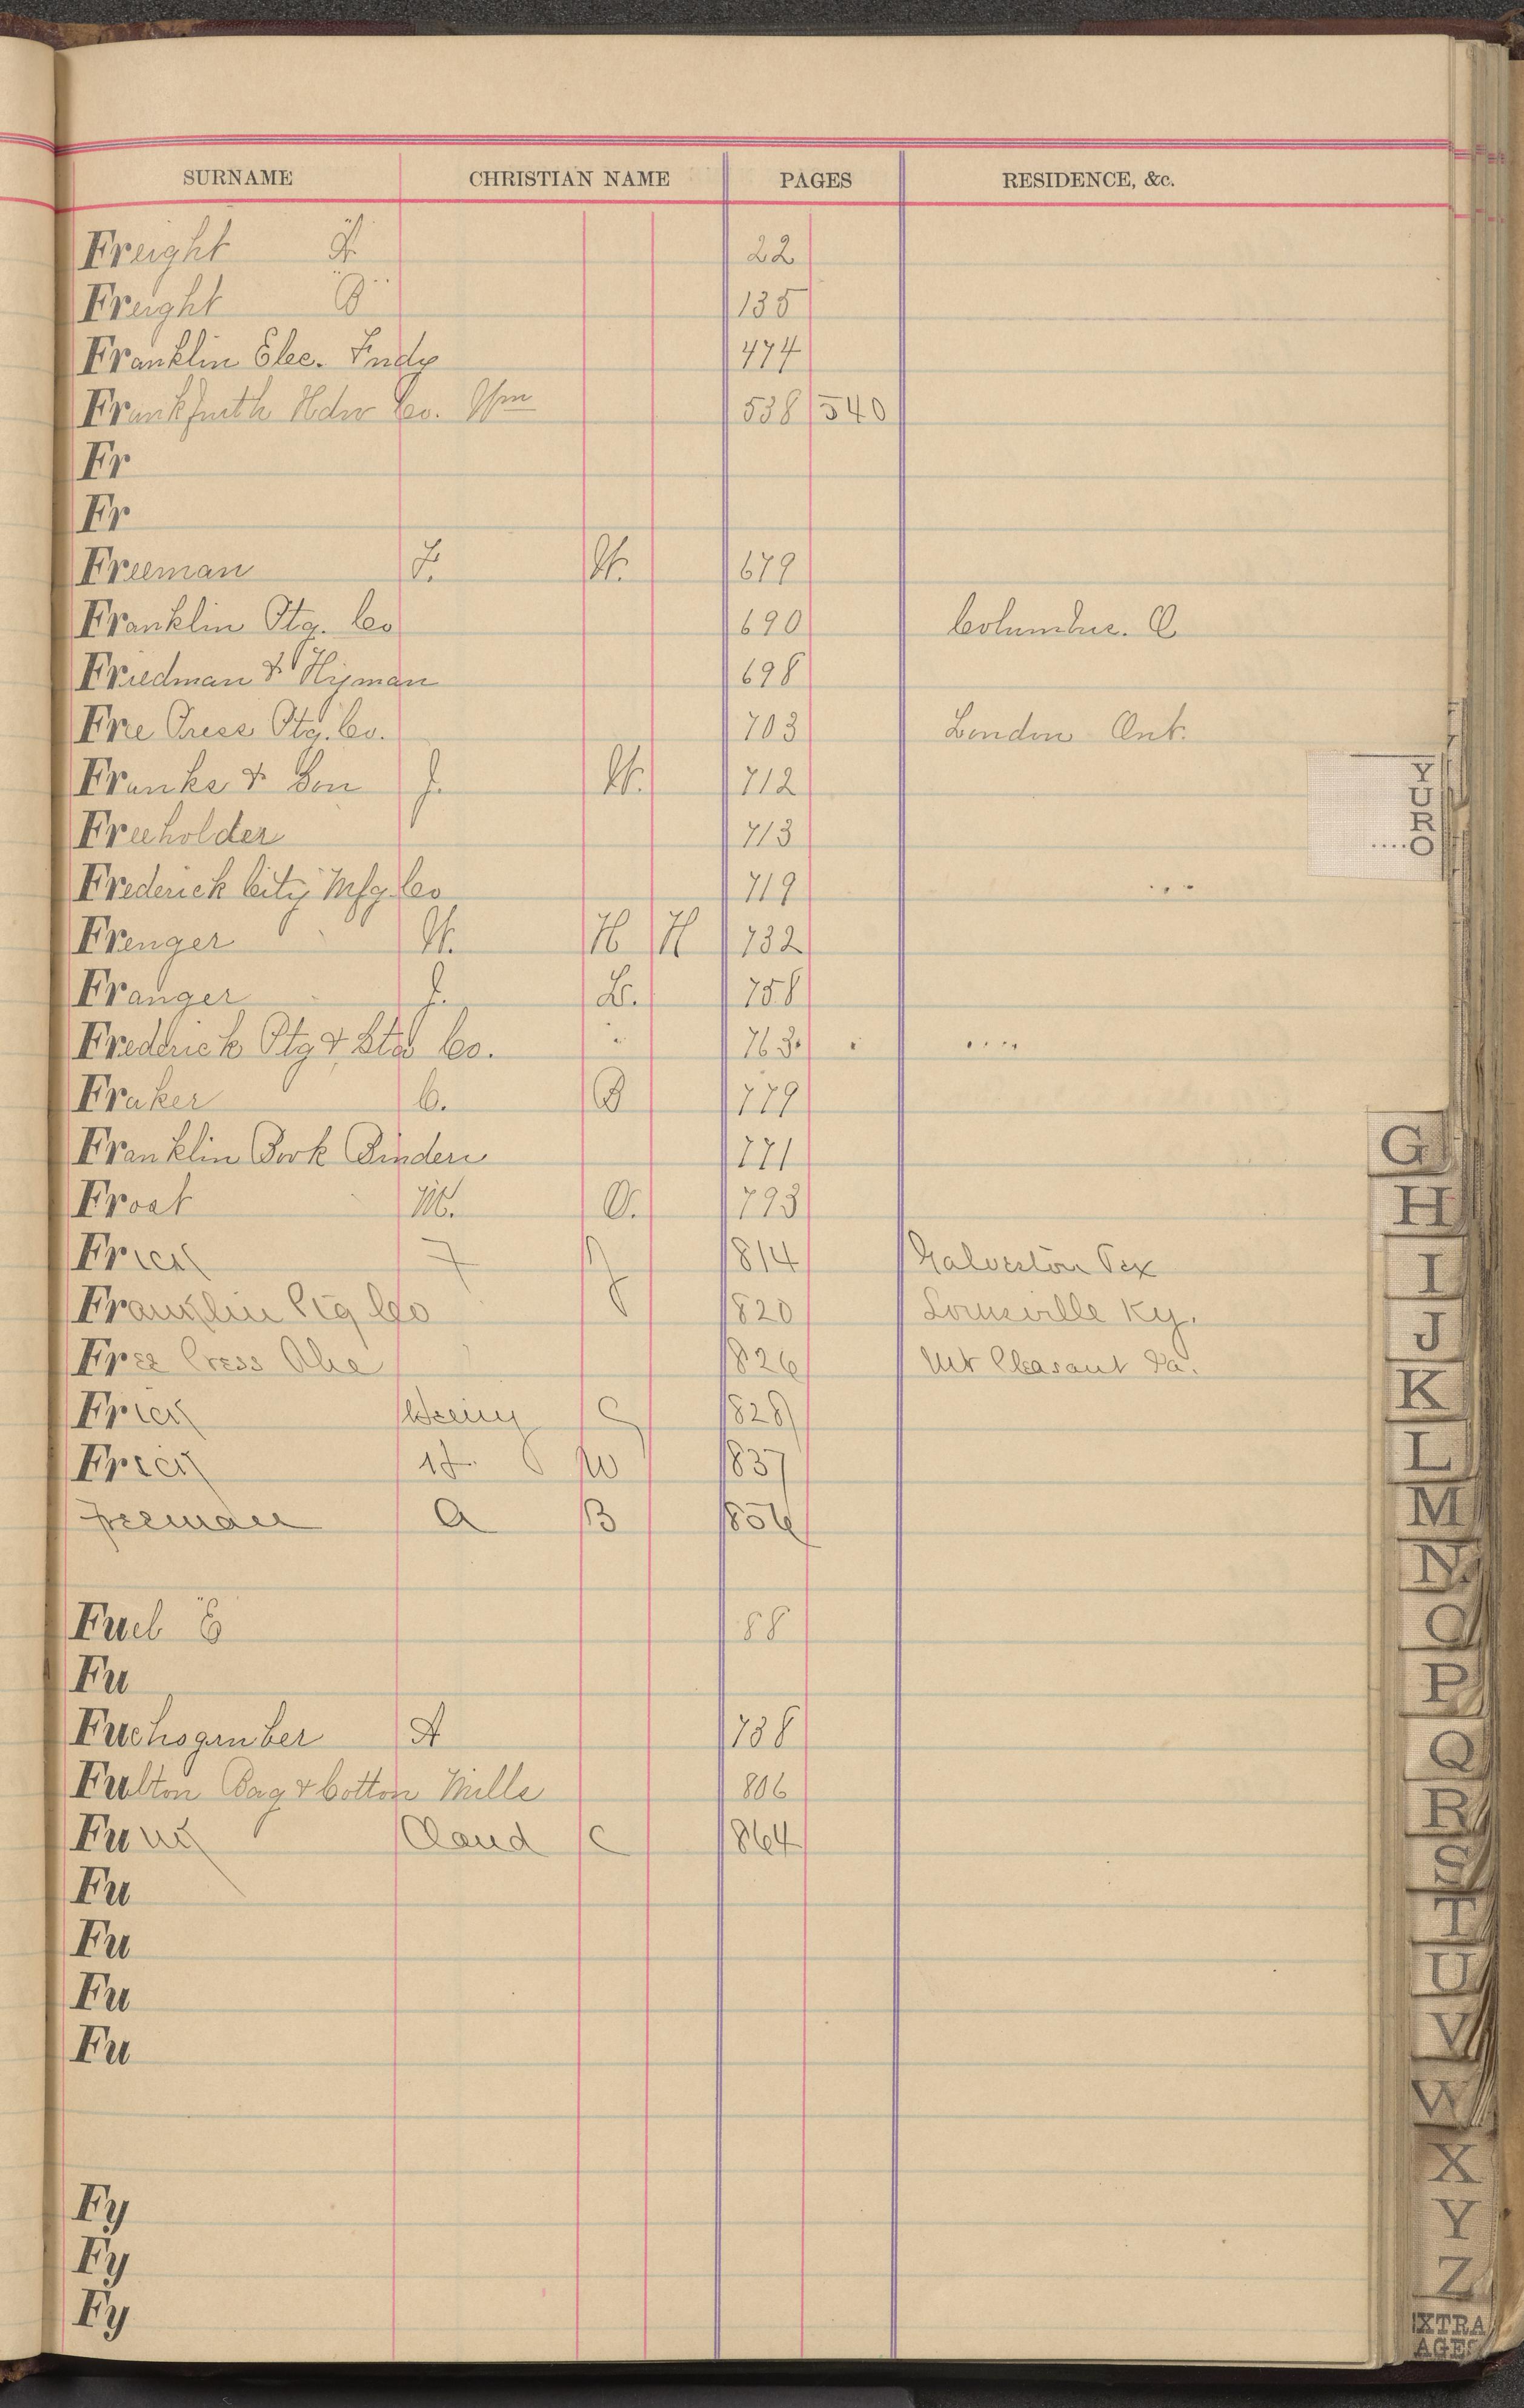 SURNAME CHRISTIAN NAME PAGES RESIDENCE, &c.
Freight "A" 22
Freight "B" 135
Franklin Elec. Fndy 474
Frankfurth Hdw Co. Wm 538 540
Fr
Fr
Freeman F. W. 679
Franklin Ptg. Co 690 Columbus. O
Friedman & Hyman 698
Free Press Ptg. Co. 703 London Ont.
Franks & Son J. W. 712
Freeholder 713
Frederick City Mfg. Co 719
Frenger W. H H 732
Franger J. L. 758
Frederick Ptg & Sta Co. 763
Fraker C. B 779
Franklin Book Bindery 771
Frost M. O. 793
Frick F J 814 Galveston Tex
Franklin Ptg Co 820 Louisville Ky.
Free Press 826 Mt Pleasant Pa.
Frick Henry C 828
Frick W 837
Freeman A B 856
Fuel "C" 88
Fu
Fuchsgruber A 738
Fulton Bag & Cotton Mills 806
Funk Claud C 864
Fu
Fu
Fu
Fu
Fy
Fy
Fy
Y
U
R
O
G
H
I
J
K
L
M
N
O
P
Q
R
S
T
U
V
W
X
Y
Z
XTRA
AGES